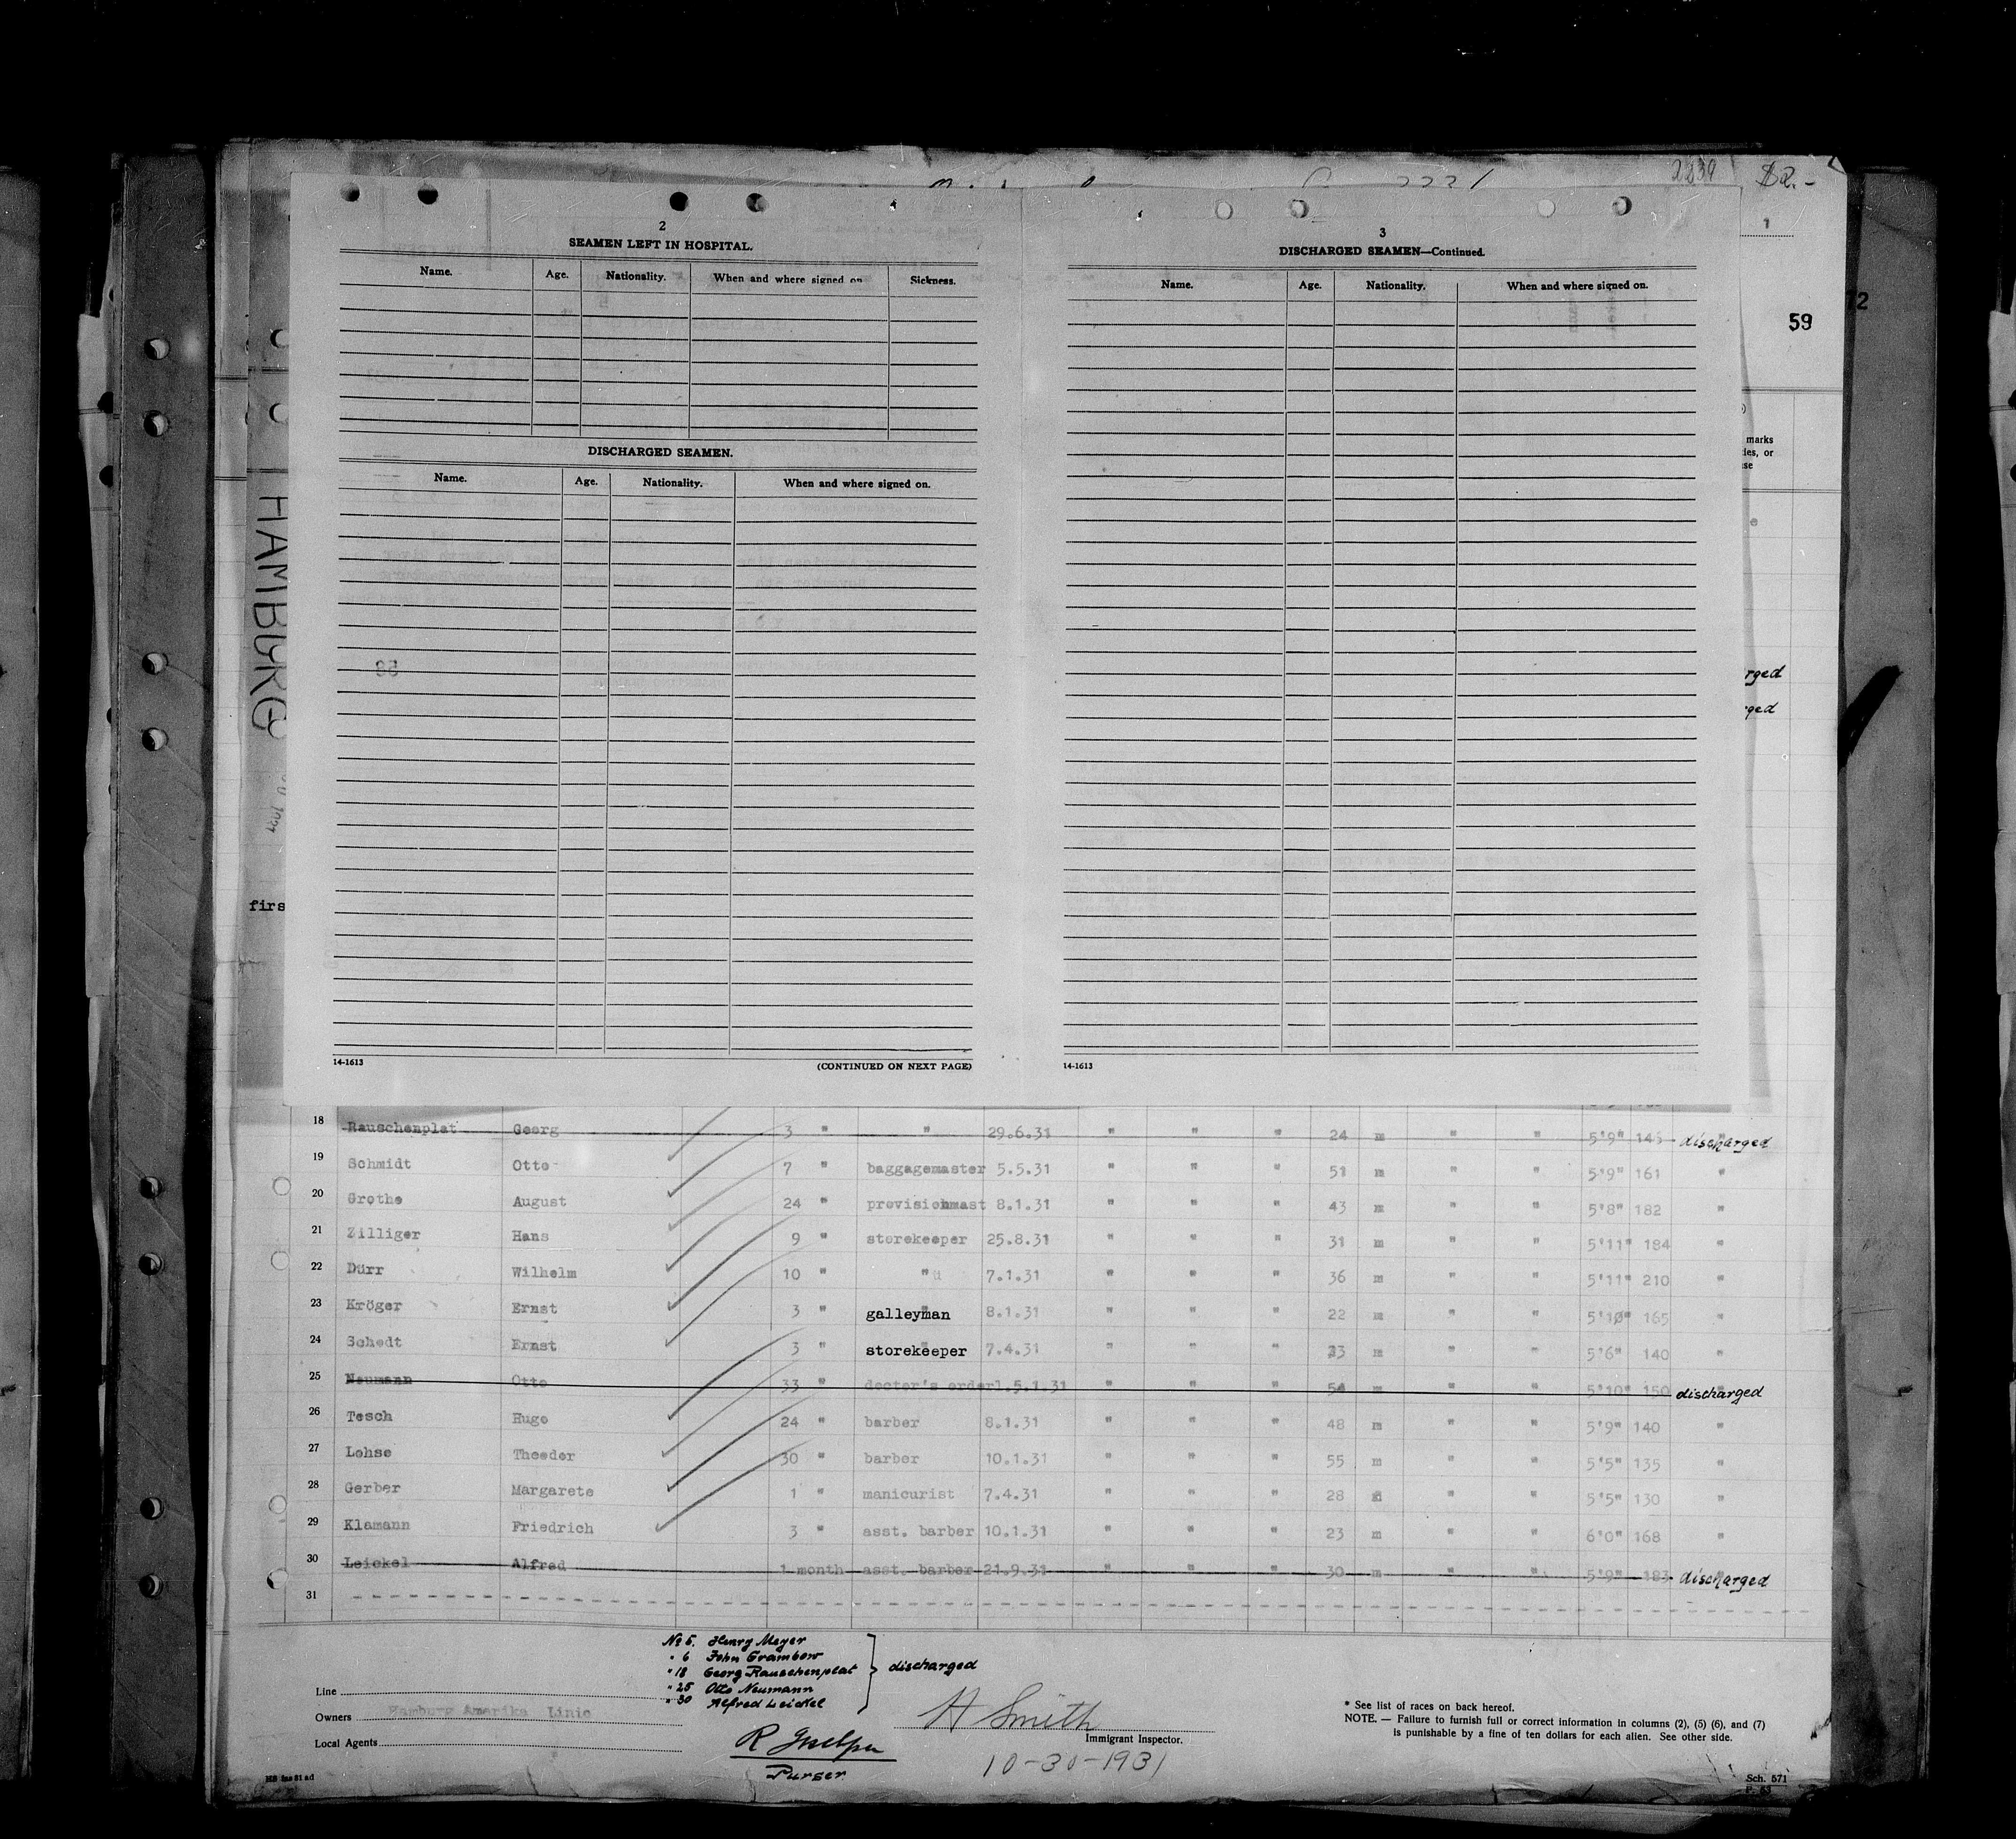 2839 $2.-
1
2
SEAMEN LEFT IN HOSPITAL.
Name. Age. Nationality. When and where signed on Sickness.
DISCHARGED SEAMEN.
Name. Age. Nationality. When and where signed on.
14-1613 (CONTINUED ON NEXT PAGE)
3
DISCHARGED SEAMEN—Continued.
Name. Age. Nationality. When and where signed on.
14-1613
59
72
marks
ies, or
se
e
rged
rged
HAMBURG
firs
18 Rauschenplat Georg 3 " " 29.6.31 " " " 24 m " " 5'9" 145 discharged
19 Schmidt Otto 7 " baggagemaster 5.5.31 " " " 51 m " " 5'9" 161 "
20 Grothe August 24 " provisionmast 8.1.31 " " " 43 m " " 5'8" 182 "
21 Zilliger Hans 9 " storekeeper 25.8.31 " " " 31 m " " 5'11" 184 "
22 Dürr Wilhelm 10 " " 7.1.31 " " " 36 m " " 5'11" 210 "
23 Kröger Ernst 3 " galleyman 8.1.31 " " " 22 m " " 5'10" 165 "
24 Schedt Ernst 3 " storekeeper 7.4.31 " " " 23 m " " 5'6" 140 "
25 Neumann Otto 33 " doctor's orderl.5.1.31 " " " 54 m " " 5'10" 150 discharged
26 Tesch Hugo 24 " barber 8.1.31 " " " 48 m " " 5'9" 140 "
27 Lohse Theodor 30 " barber 10.1.31 " " " 55 m " " 5'5" 135 "
28 Gerber Margarete 1 " manicurist 7.4.31 " " " 28 " " 5'5" 130 "
29 Klamann Friedrich 3 " asst. barber 10.1.31 " " " 23 m " " 6'0" 168 "
30 Leickel Alfred 1 month asst. barber 21.9.31 " " " 30 m " " 5'9" 183 discharged
31
No 5. Henry Meyer
" 6 John Grambow
" 18 Georg Rauschenplat } discharged
" 25 Otto Neumann
" 30 Alfred Leickel
Line
Owners Hamburg Amerika Linie
Local Agents
R
Purser
H Smith
Immigrant Inspector.
10-30-1931
* See list of races on back hereof.
NOTE. — Failure to furnish full or correct information in columns (2), (5) (6), and (7)
is punishable by a fine of ten dollars for each alien. See other side.
Sch. 571